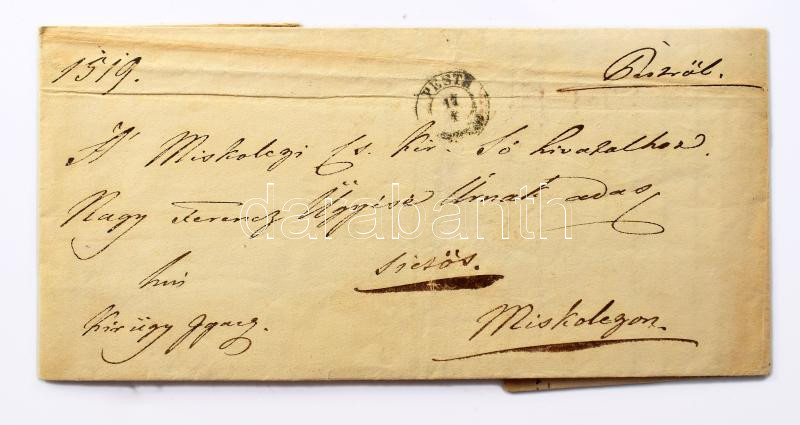 1519. Pestről.
PESTH
17
4
A' Miskolczi Cs. Kir. Só hivatalhoz.
Nagy Ferencz Ügyész Úrnak adas
darabanth
hiv. sietős.
Kir ügy Igazg. Miskolczon.